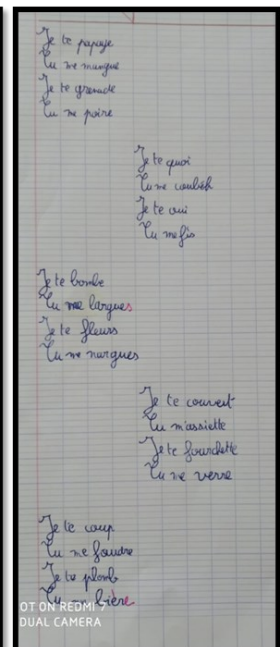 Je te papaye
Tu me mangue
Je te grenade
Tu me poire
Je te quoi
Tu me
Je te oui
Tu me fis
Je te bombe
Tu me largues
Je te fleurs
Tu me nargues
Je te couvert
Tu m'assiette
Je te fourchette
Tu me verre
Je te coup
Tu me foudre
Je te plomb
Tu me bière
OT ON REDMI 7
DUAL CAMERA